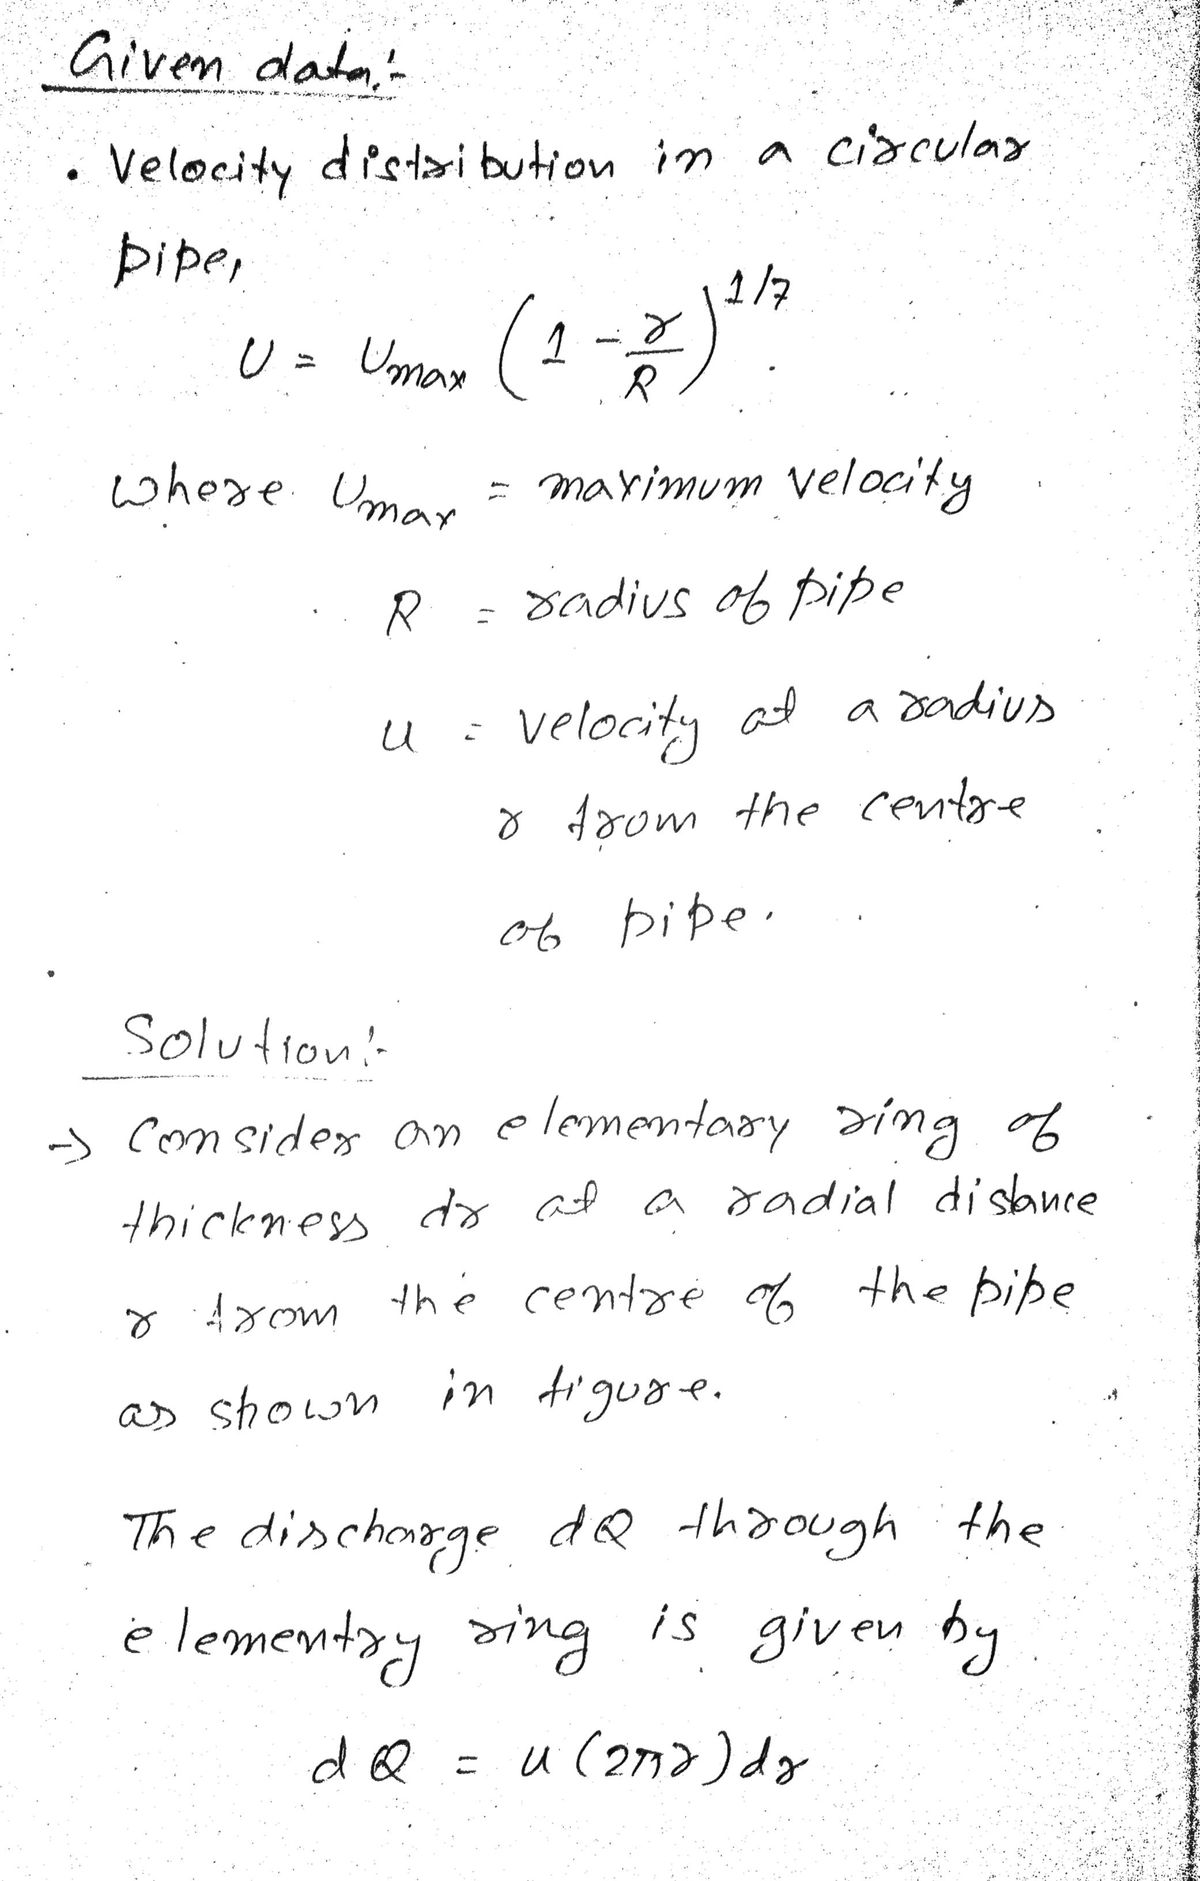 Given data:-
• Velocity distribution in a circular
pipe,
U = Umax (1 - r/R)^1/7
where Umax = maximum velocity
R = radius of pipe
u = velocity at a radius
r from the centre
of pipe.
Solution:-
→ Consider an elementary ring of
thickness dr at a radial distance
r from the centre of the pipe
as shown in figure.
The discharge dQ through the
elementry ring is given by
dQ = u(2πr)dr